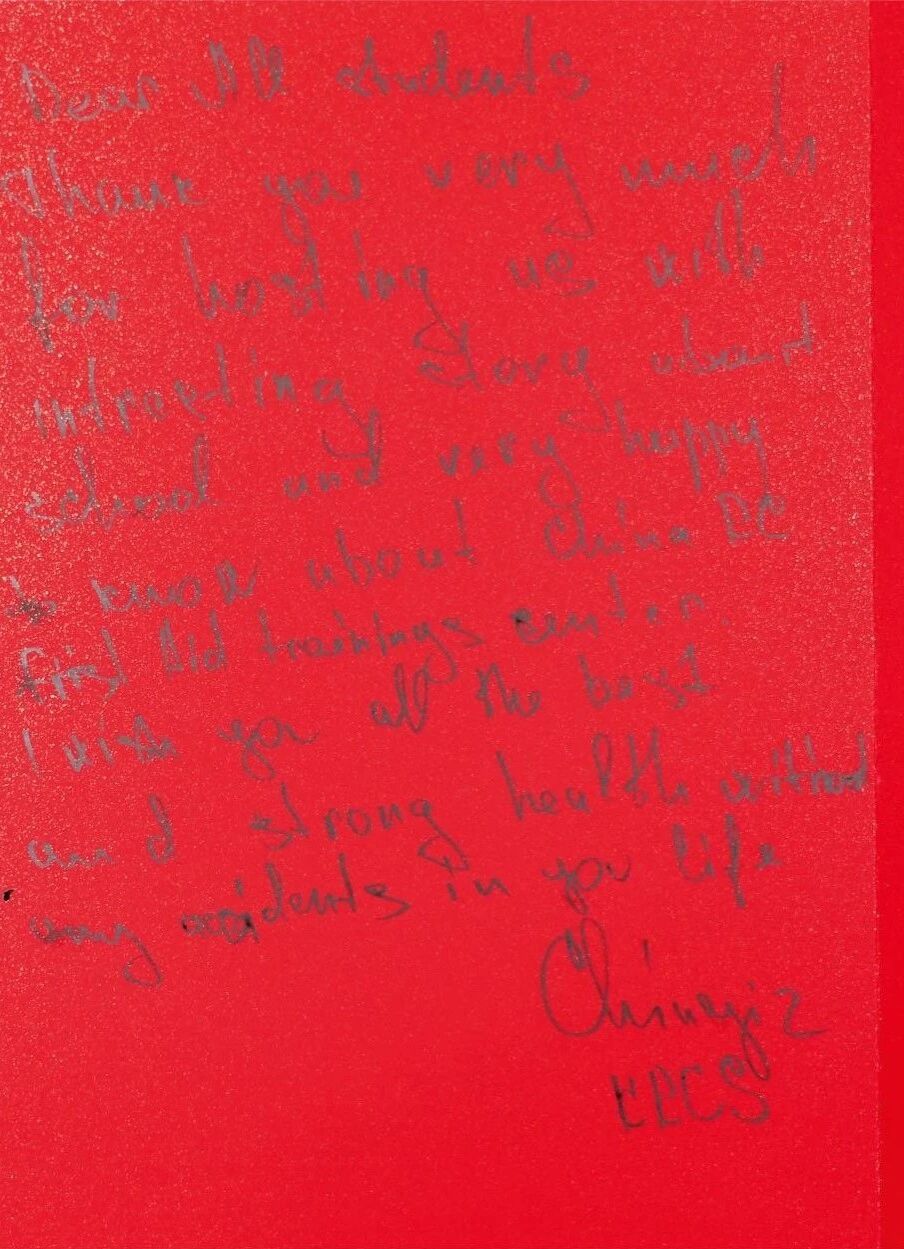 Dear All students
Thank you very much
for hosting us with
intresting story about
school and very happy
to know about China RC
First Aid trainings center.
I wish you all the best
and strong health without
any accidents in you life
Chingiz